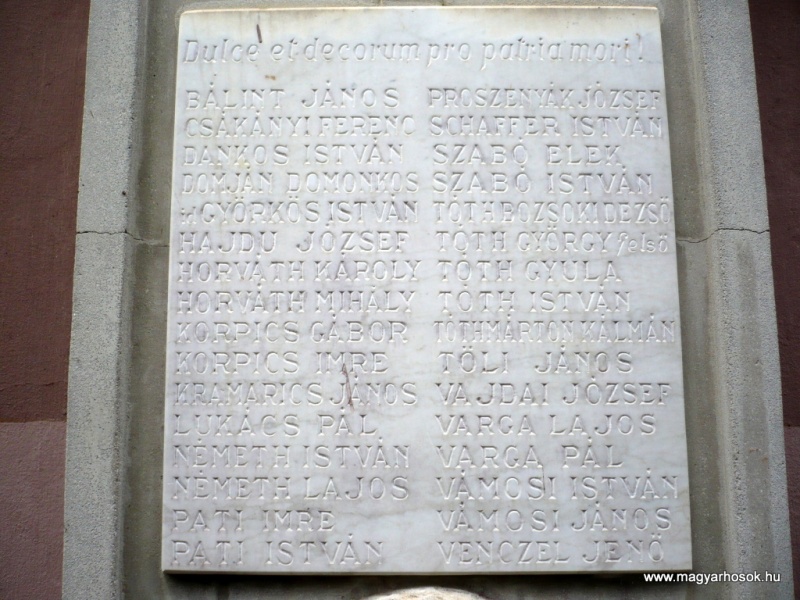 Dulce et decorum pro patria mori!
BÁLINT JÁNOS
CSÁKÁNYI FERENC
DANKOS ISTVÁN
DOMJÁN DOMONKOS
id GYÖRKÖS ISTVÁN
HAJDU JÓZSEF
HORVÁTH KÁROLY
HORVÁTH MIHÁLY
KORPICS GÁBOR
KORPICS IMRE
KRAMARICS JÁNOS
LUKÁCS PÁL
NÉMETH ISTVÁN
NÉMETH LAJOS
PATI IMRE
PATI ISTVÁN
PROSZENYÁK JÓZSEF
SCHAFFER ISTVÁN
SZABÓ ELEK
SZABÓ ISTVÁN
TÓTH BOZSOKI DEZSŐ
TÓTH GYÖRGY felső
TÓTH GYULA
TÓTH ISTVÁN
TÓTH MÁRTON KÁLMÁN
TÖLI JÁNOS
VAJDAI JÓZSEF
VARGA LAJOS
VARGA PÁL
VÁMOSI ISTVÁN
VÁMOSI JÁNOS
VENCZEL JENŐ
www.magyarhosok.hu